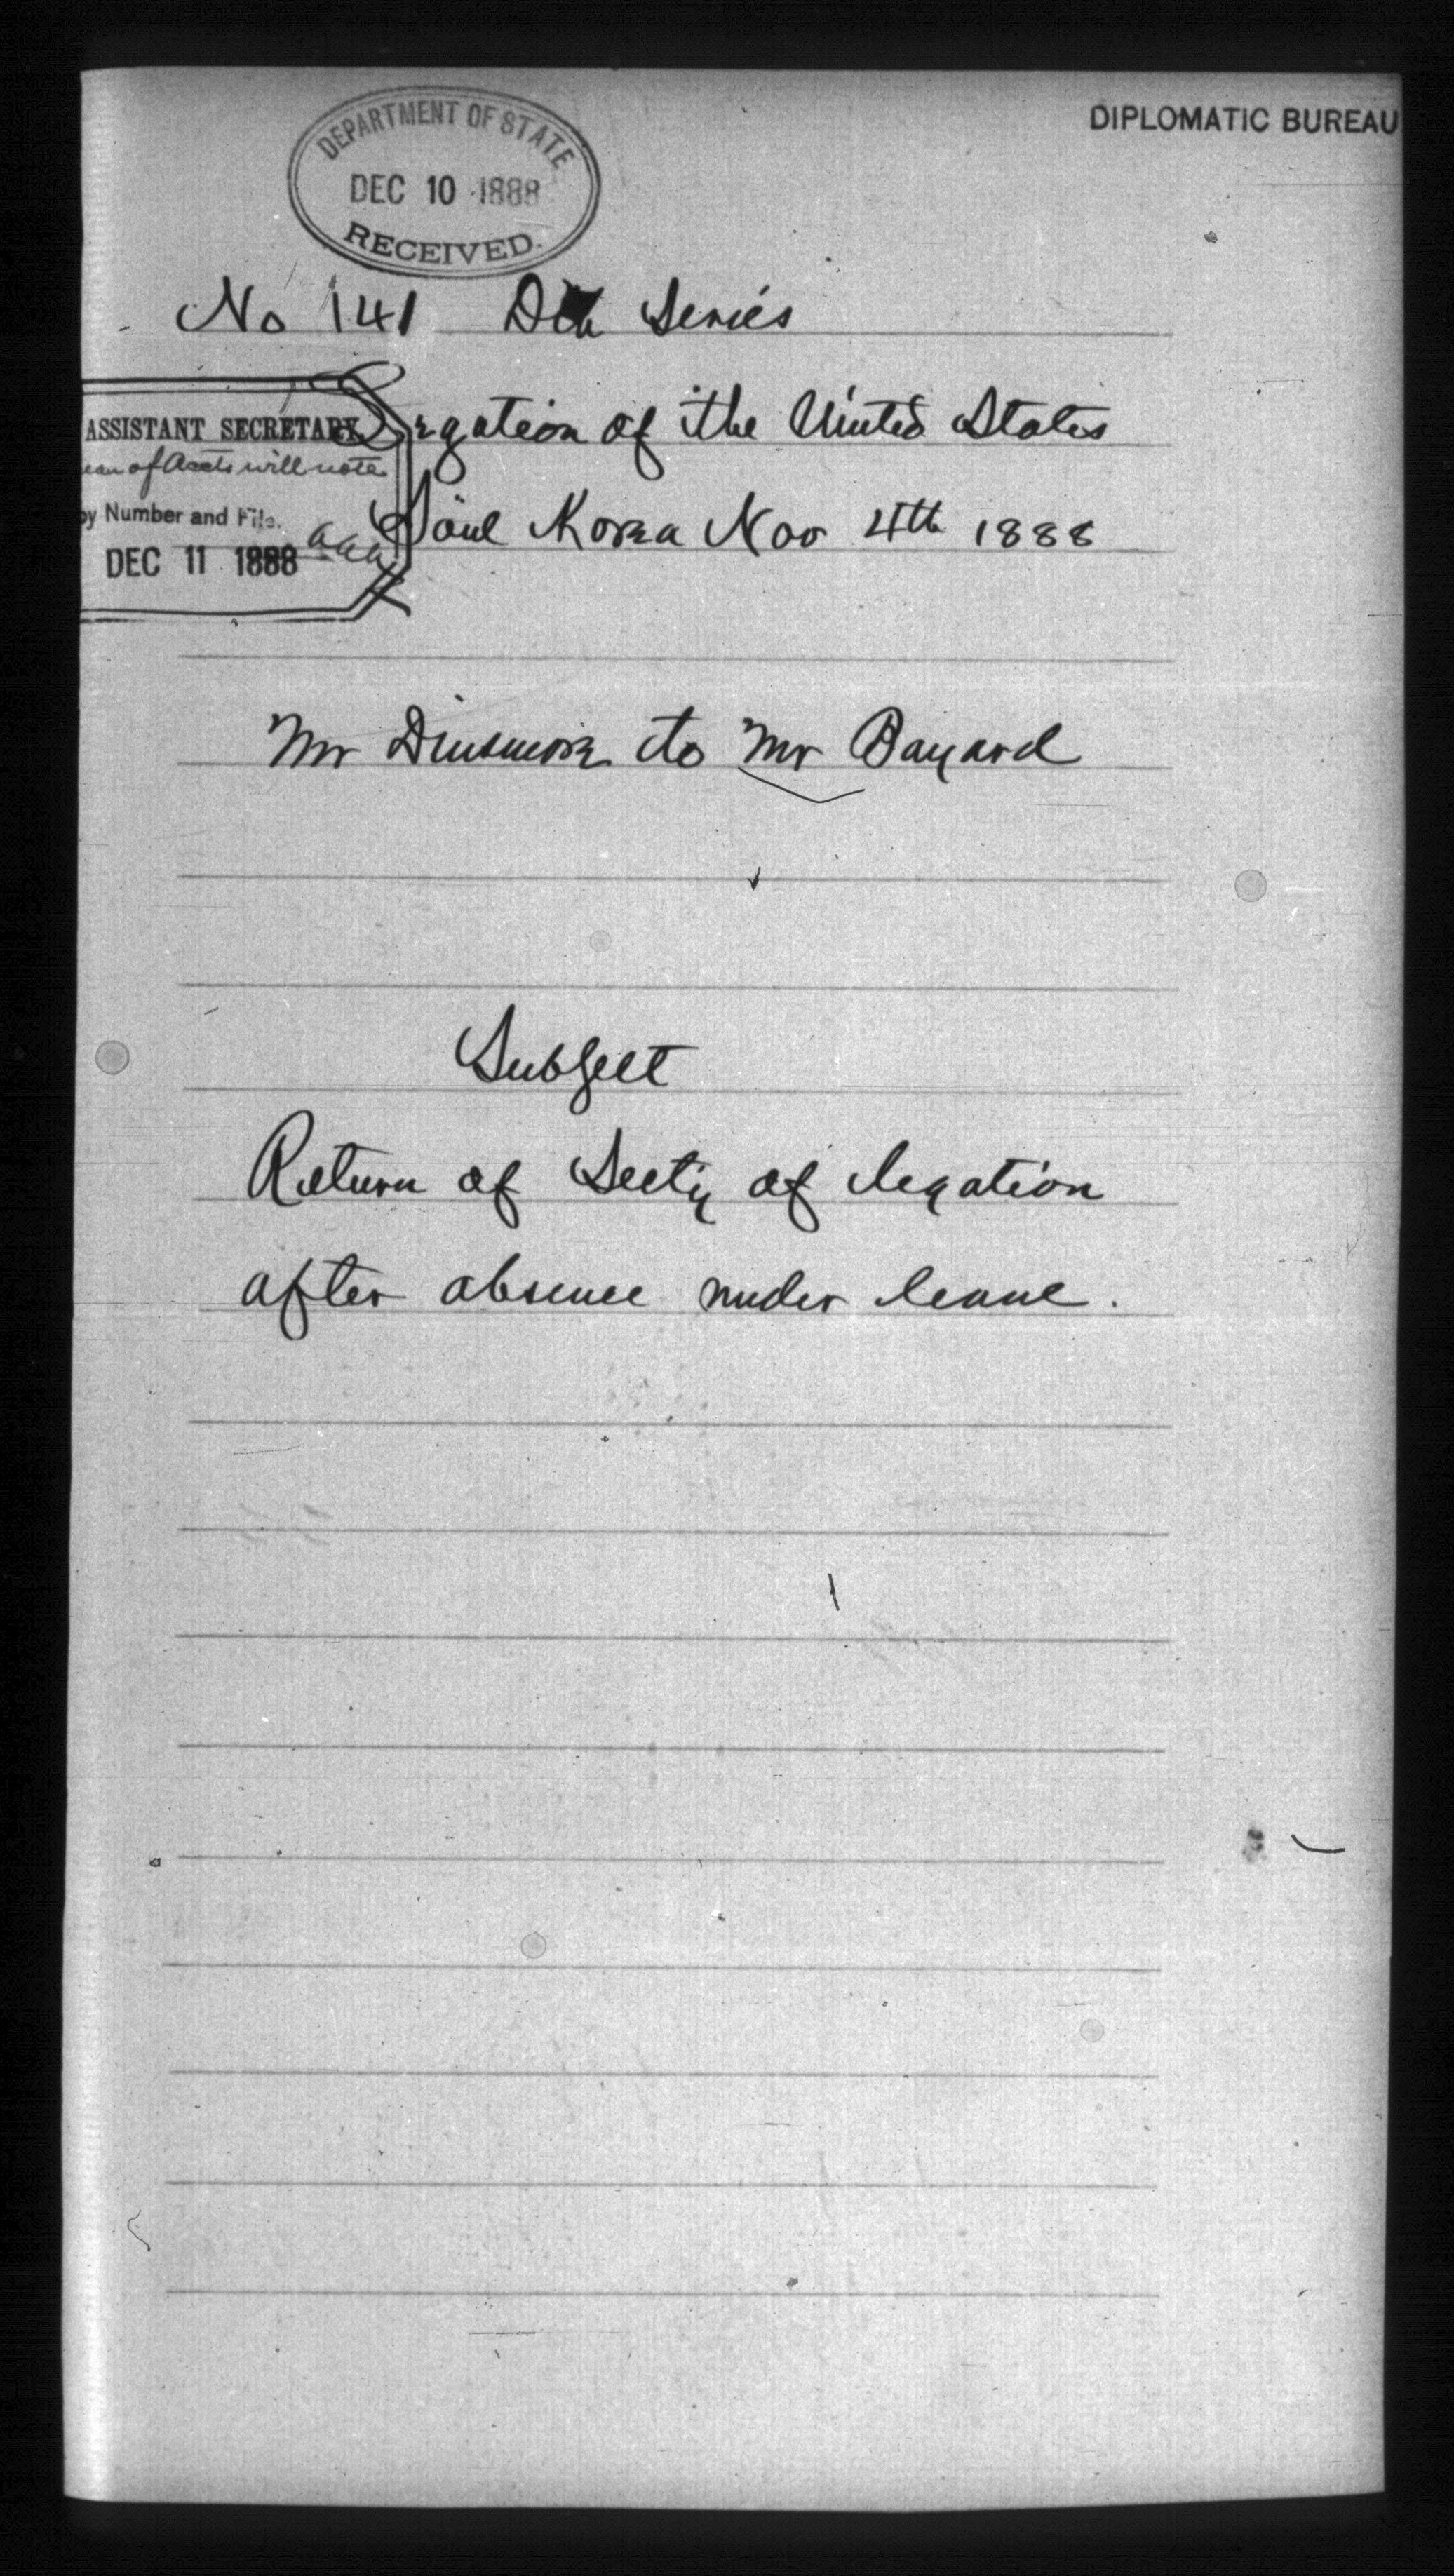 DIPLOMATIC BUREAU
DEPARTMENT OF STATE
DEC 10 1888
RECEIVED.
No 141 Series
Legation of the United States
ASSISTANT SECRETARY
of Accts will note
by Number and File.
DEC 11 1888
Söul Korea Nov 4th 1888
Mr Dinsmore to Mr Bayard
Subject
Return of Secty of legation
after absence under leave.